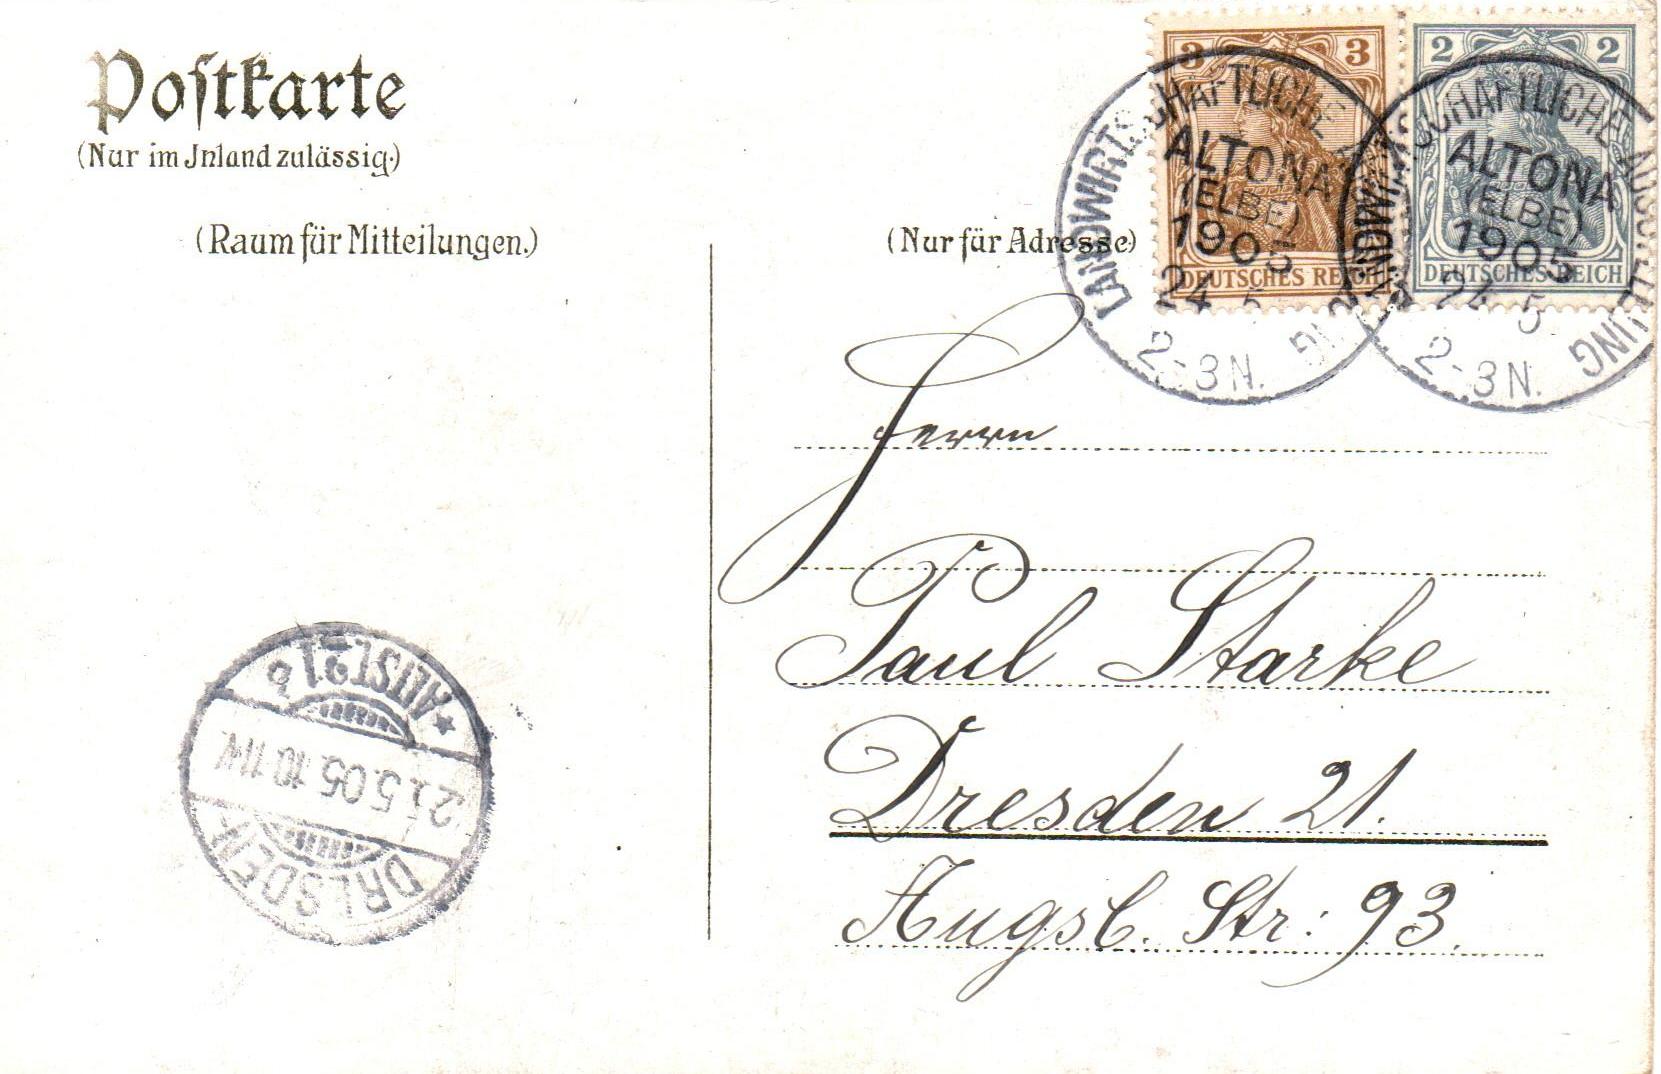 Postkarte
(Nur im Inland zulässig.)
(Raum für Mitteilungen.)
(Nur für Adresse)
3 3
DEUTSCHES REICH
2 2
DEUTSCHES REICH
LANDWIRTSCHAFTLICHE AUSSTELLUNG
ALTONA
(ELBE)
1905
24 5
2-3N.
LANDWIRTSCHAFTLICHE AUSSTELLUNG
ALTONA
(ELBE)
1905
24 5
2-3N.
Herrn
Paul Starke
Dresden 21.
Augsb. Str: 93.
DRESDEN-
25.5.05.10-11V.
*ALTST.